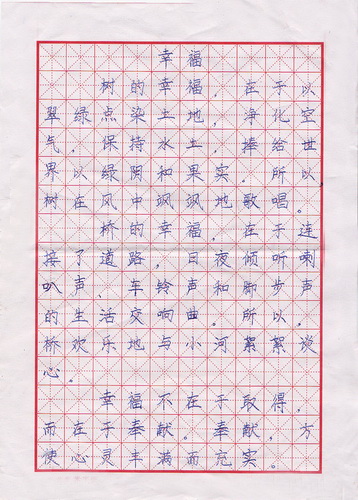 幸福
树的幸福，在于以
翠绿点染土地，净化空
气。保持水土，捧给世
界以绿阴和果实。所以
树在风中飒飒地歌唱。
桥的幸福，在于连
接了道路，日夜倾听喇
叭声、车铃声和脚步声
的生活交响曲。所以，
桥欢乐地与小河絮絮谈
心。
幸福不在于取得，
而在于奉献。奉献，方
使心灵丰满而充实。